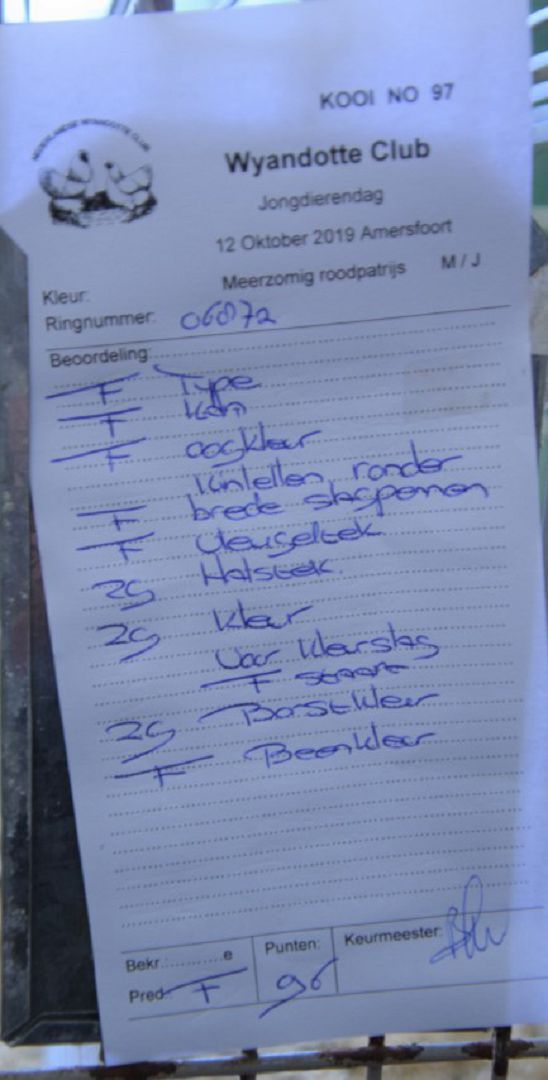 KOOI NO 97
NEDERLANDSE WYANDOTTE CLUB
Wyandotte Club
Jongdierendag
12 Oktober 2019 Amersfoort
Kleur: Meerzomig roodpatrijs M / J
Ringnummer:
Beoordeling:
F Type
F Kam
F oogkleur
Kinlellen ronder
F brede slagpennen
F Vleugeldek
ZG Halsdek
ZG Kleur
Voor kleurslag
F staart
ZG Borstkleur
F Beenkleur
Bekr.:..........e Punten: Keurmeester:
Pred: F 96